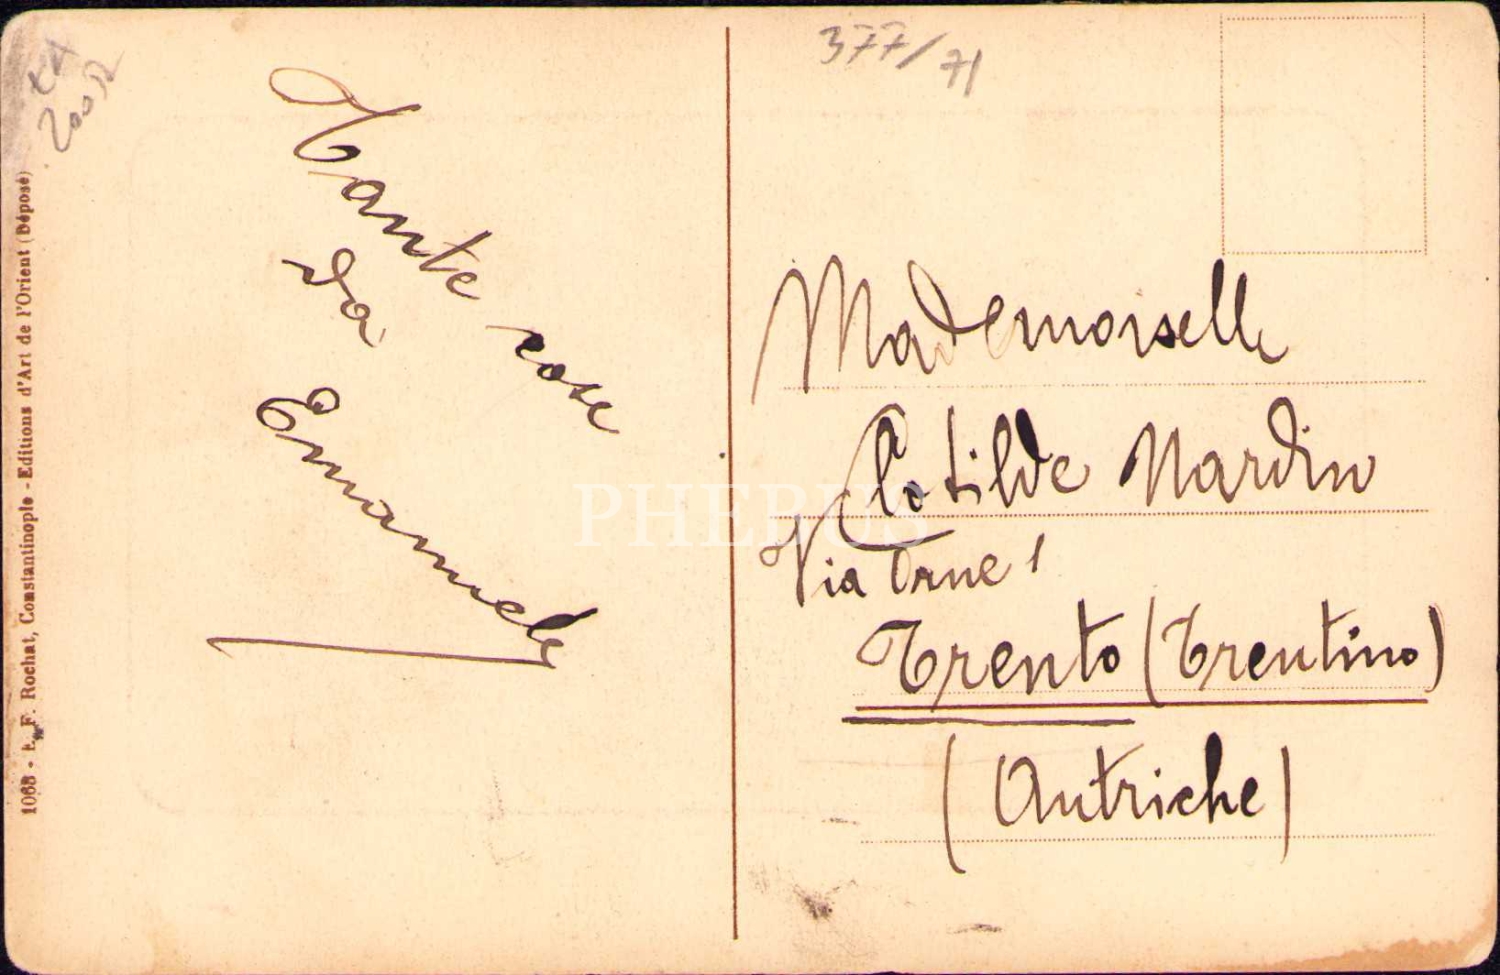 377/71
Tante cose
da
Emanuele
Mademoiselle
Clotilde Nardin
Via Orne 1
Trento (Trentino)
(Autriche)
1068 - E. F. Rochat, Constantinople - Editions d'Art de l'Orient (Déposé)
PHEBUS